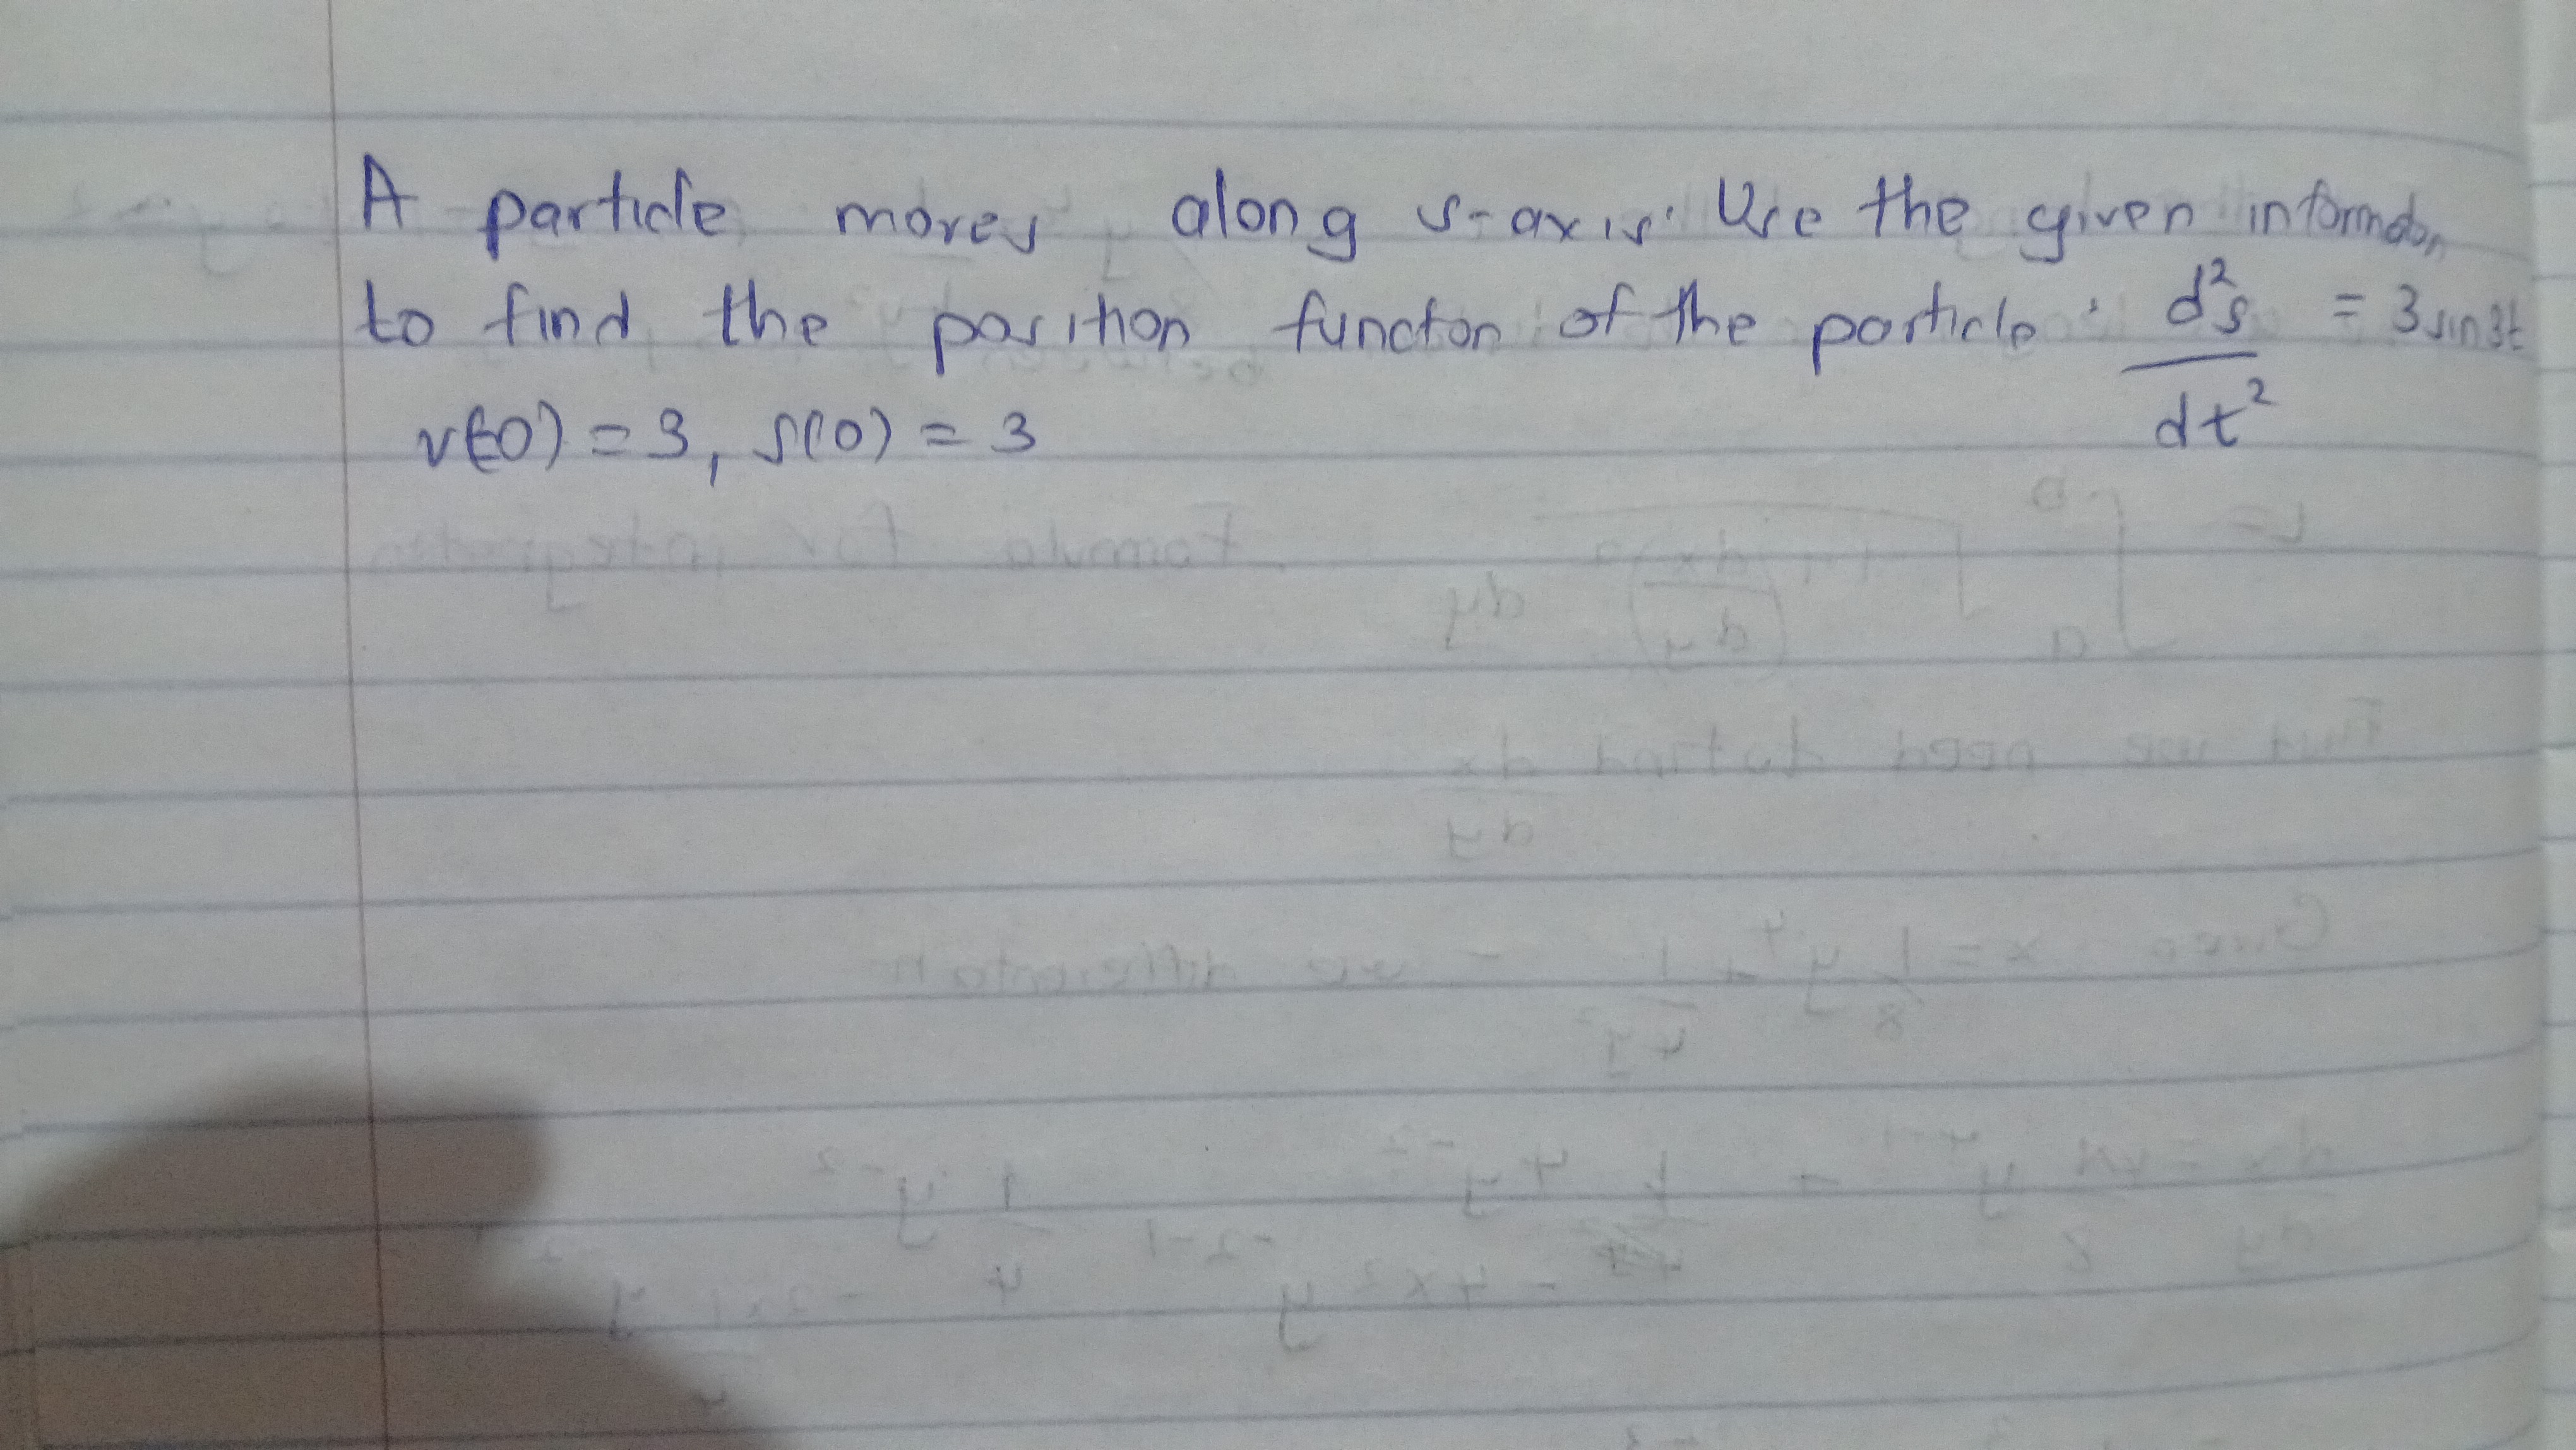 A particle moves along s-axis. Use the given information
to find the position function of the particle. d²s/dt² = 3sin3t
v(0) = 3, s(0) = 3